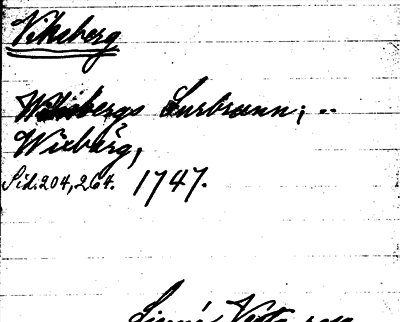 Viksberg
Wiksbergs Surbrunn; ..
Wixbärg,
Sid. 204, 264. 1747.
Linné, Vestg. resa